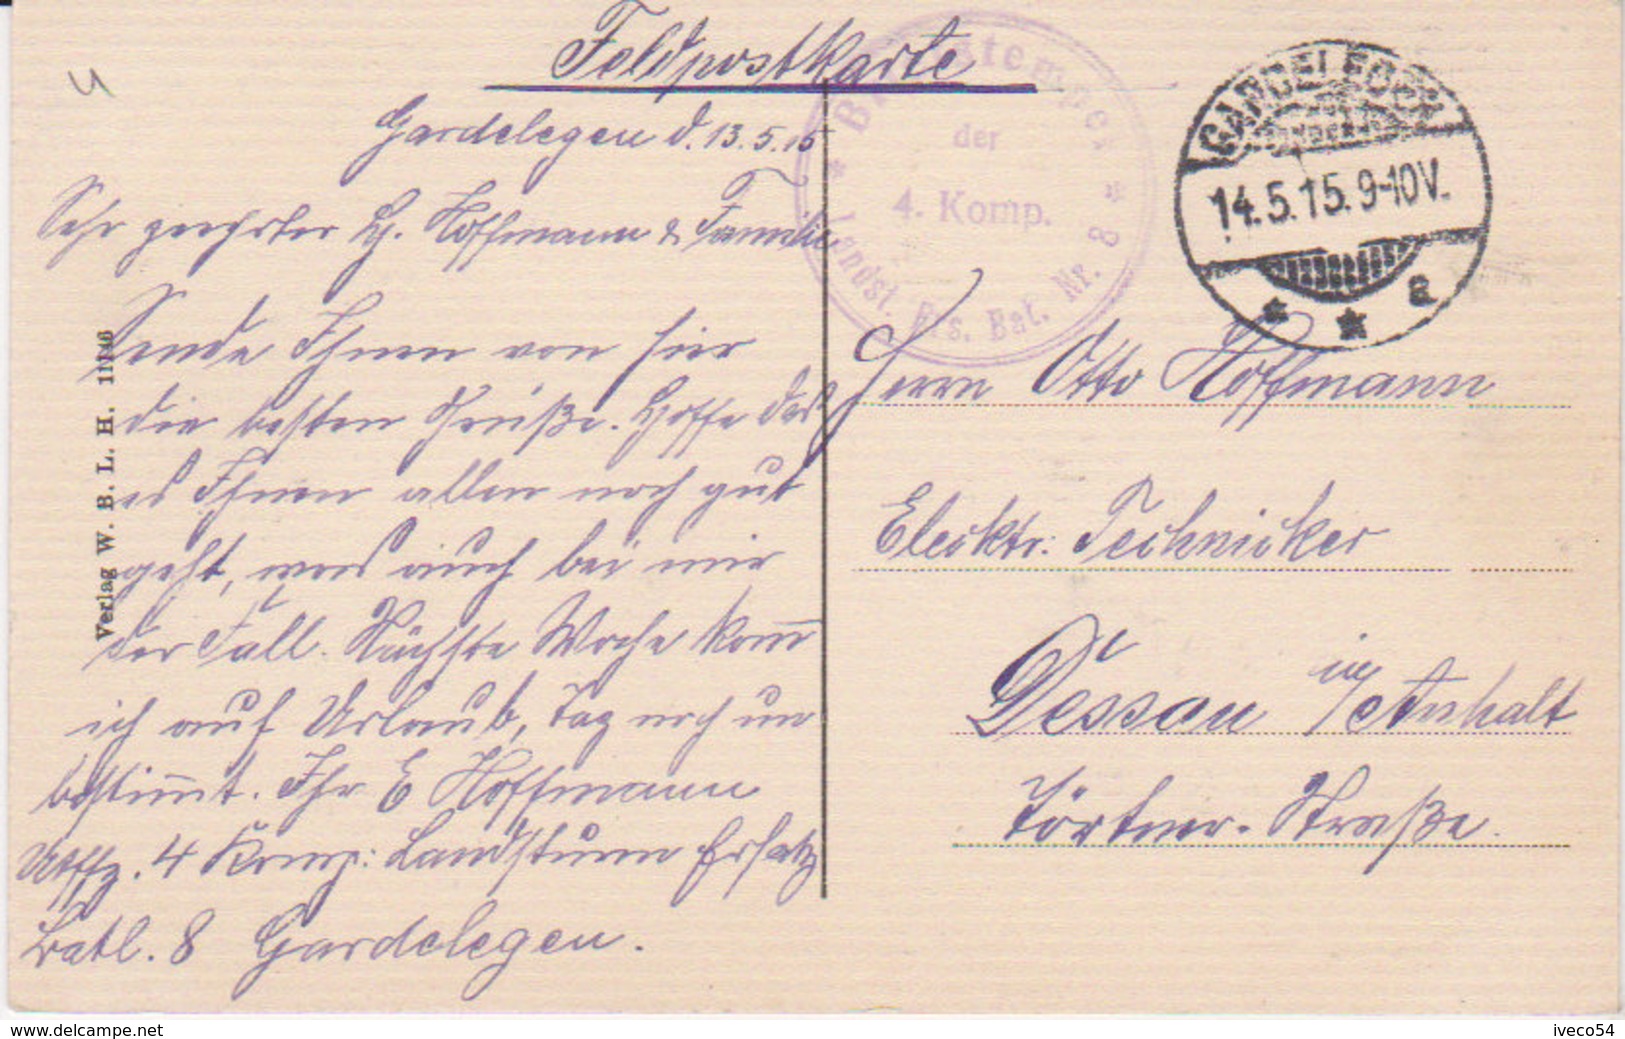 Feldpostkarte
Gardelegen d. 13.5.15
Sehr geehrter H. Hoffmann & Familie
Sende Ihnen von hier
die besten Grüße. Hoffe das
es Ihnen allen noch gut
geht, was auch bei mir
der Fall. Nächste Woche kom̄
ich auf Urlaub, Tag noch un
bestim̄t. Ihr E Hoffmann
Utffz. 4 Komp: Landsturm Ersatz
Batl. 8 Gardelegen.
Verlag W. B. L. H.
Briefstempel
der
4. Komp.
Landst. Ers. Bat. Nr. 8
GARDELEGEN
14.5.15.9-10V.
* * a
Herrn Otto Hoffmann
Elecktr: Technicker
Dessau in/Anhalt
Straße.
www.delcampe.net
iveco54